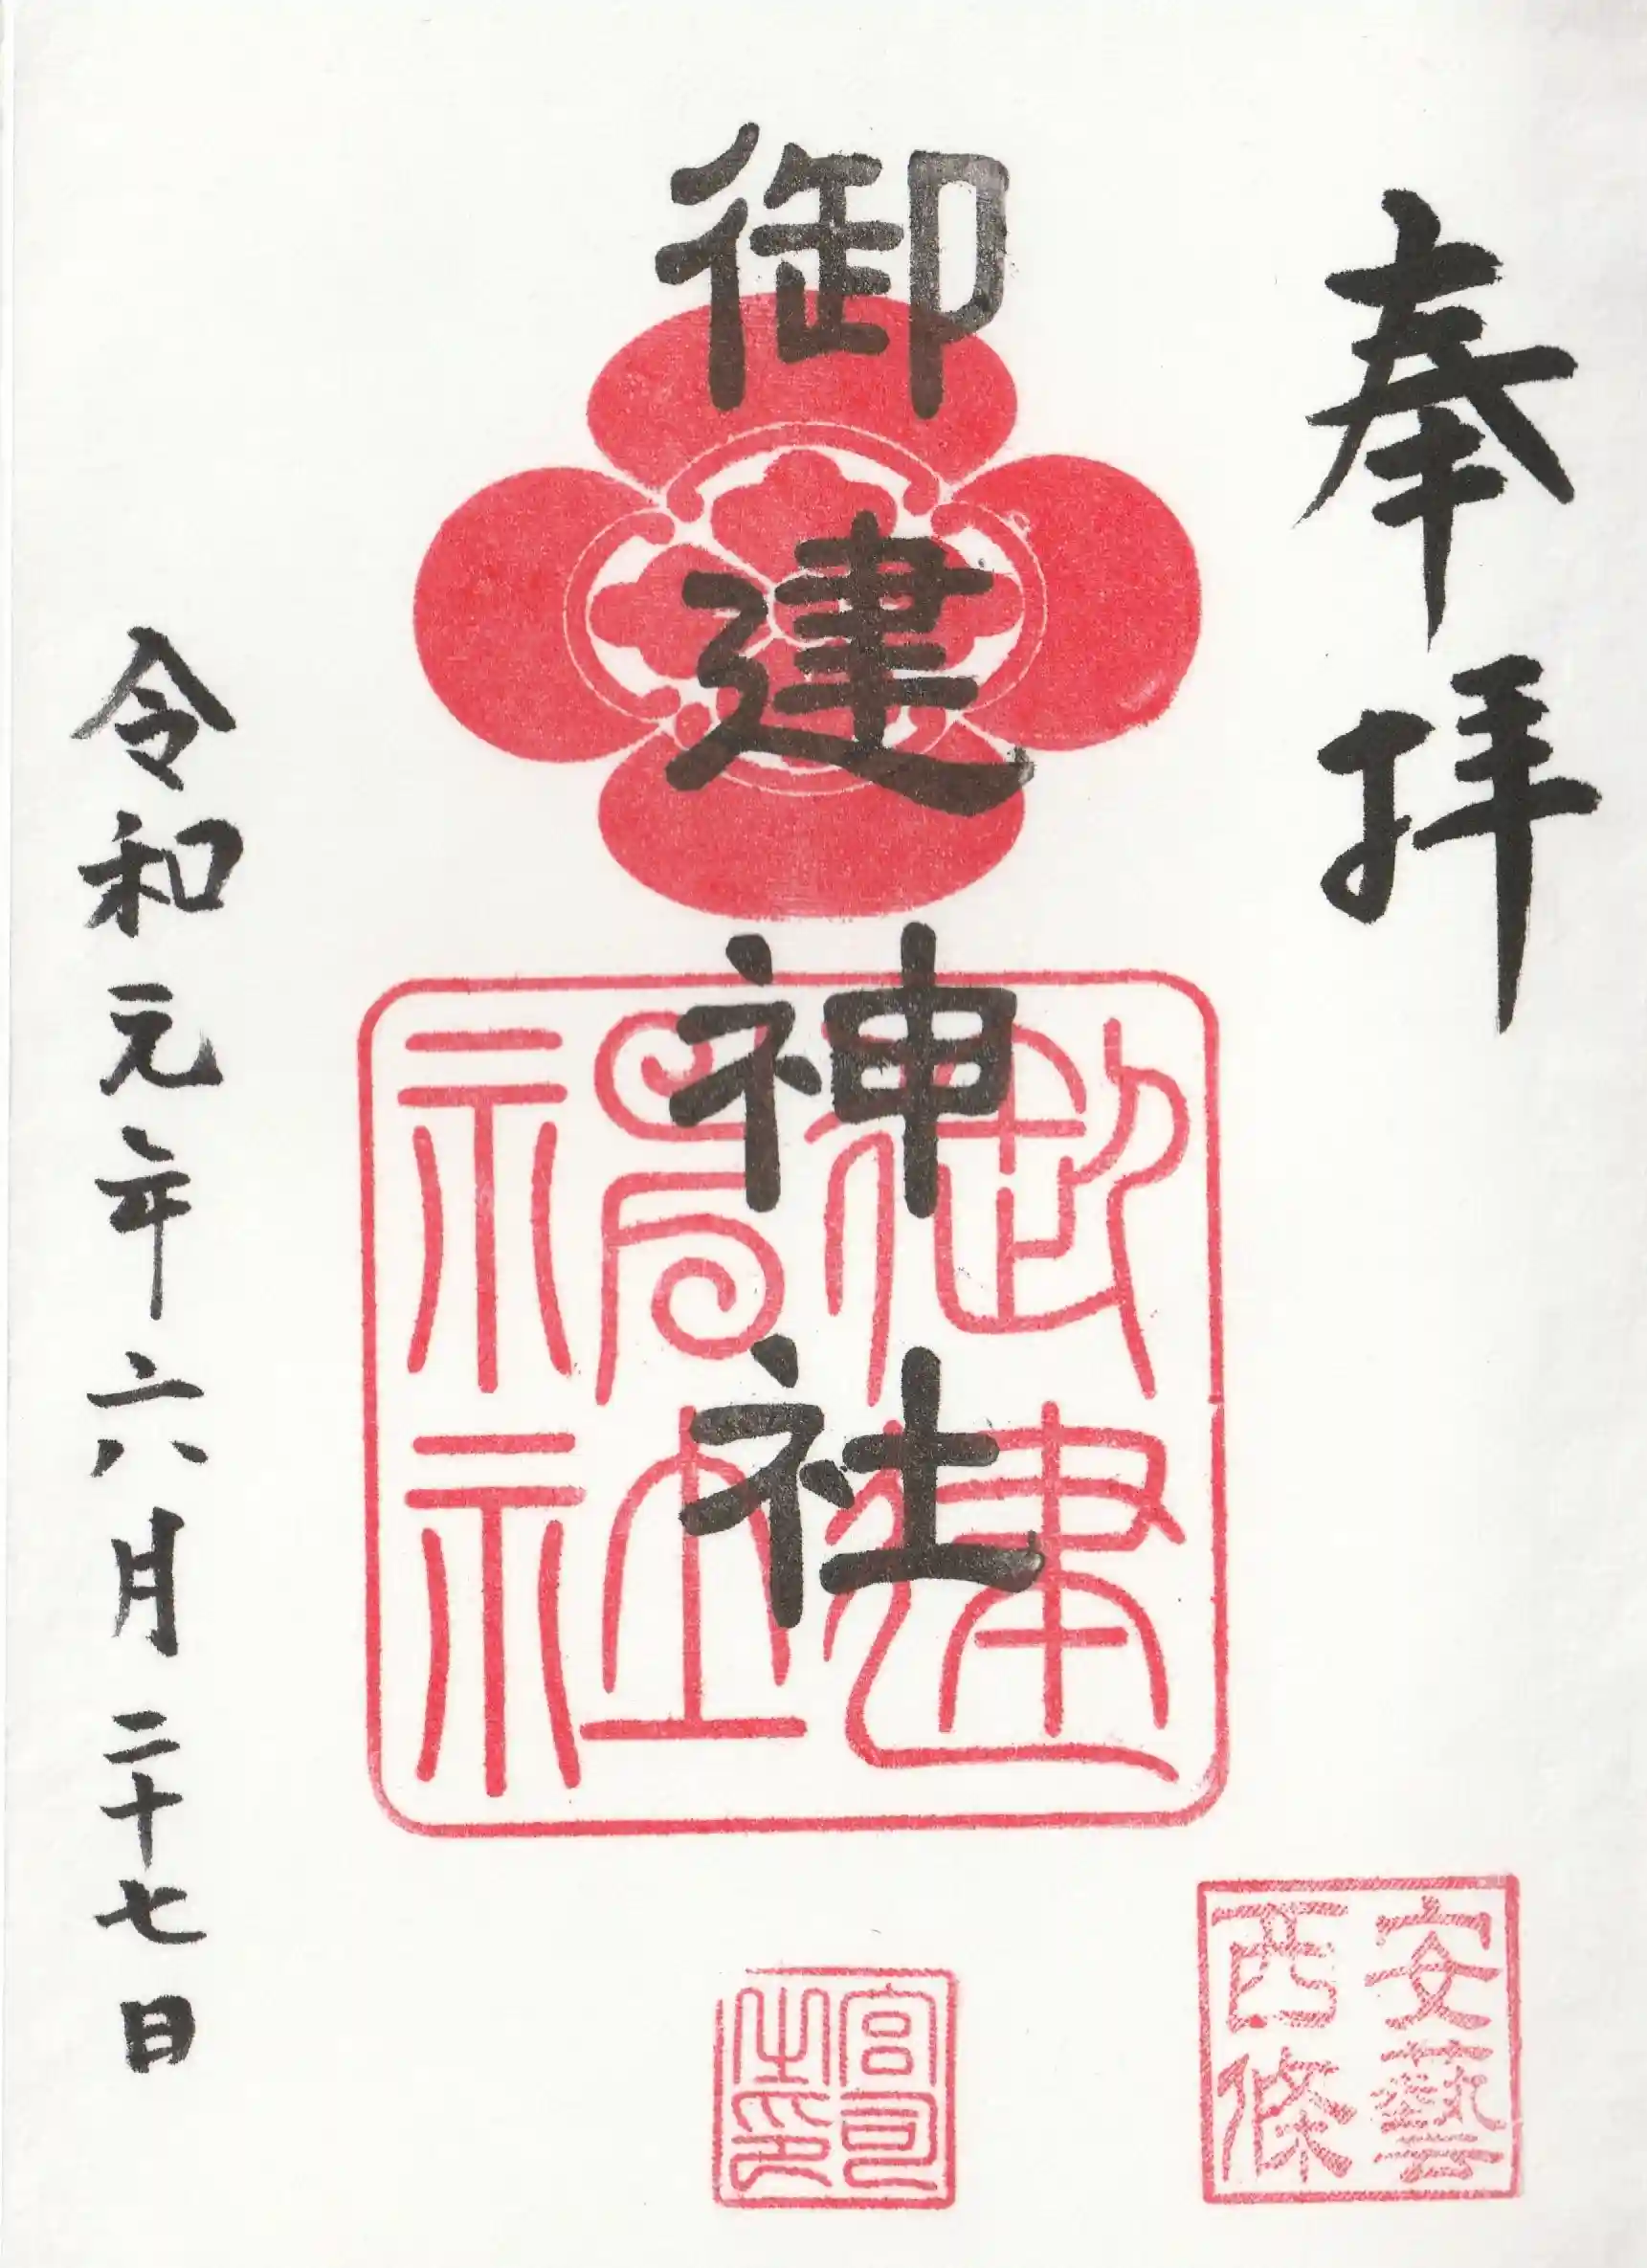 奉拝
御建神社
御建神社
令和元年六月二十七日
安藝
西條
宮司
之印